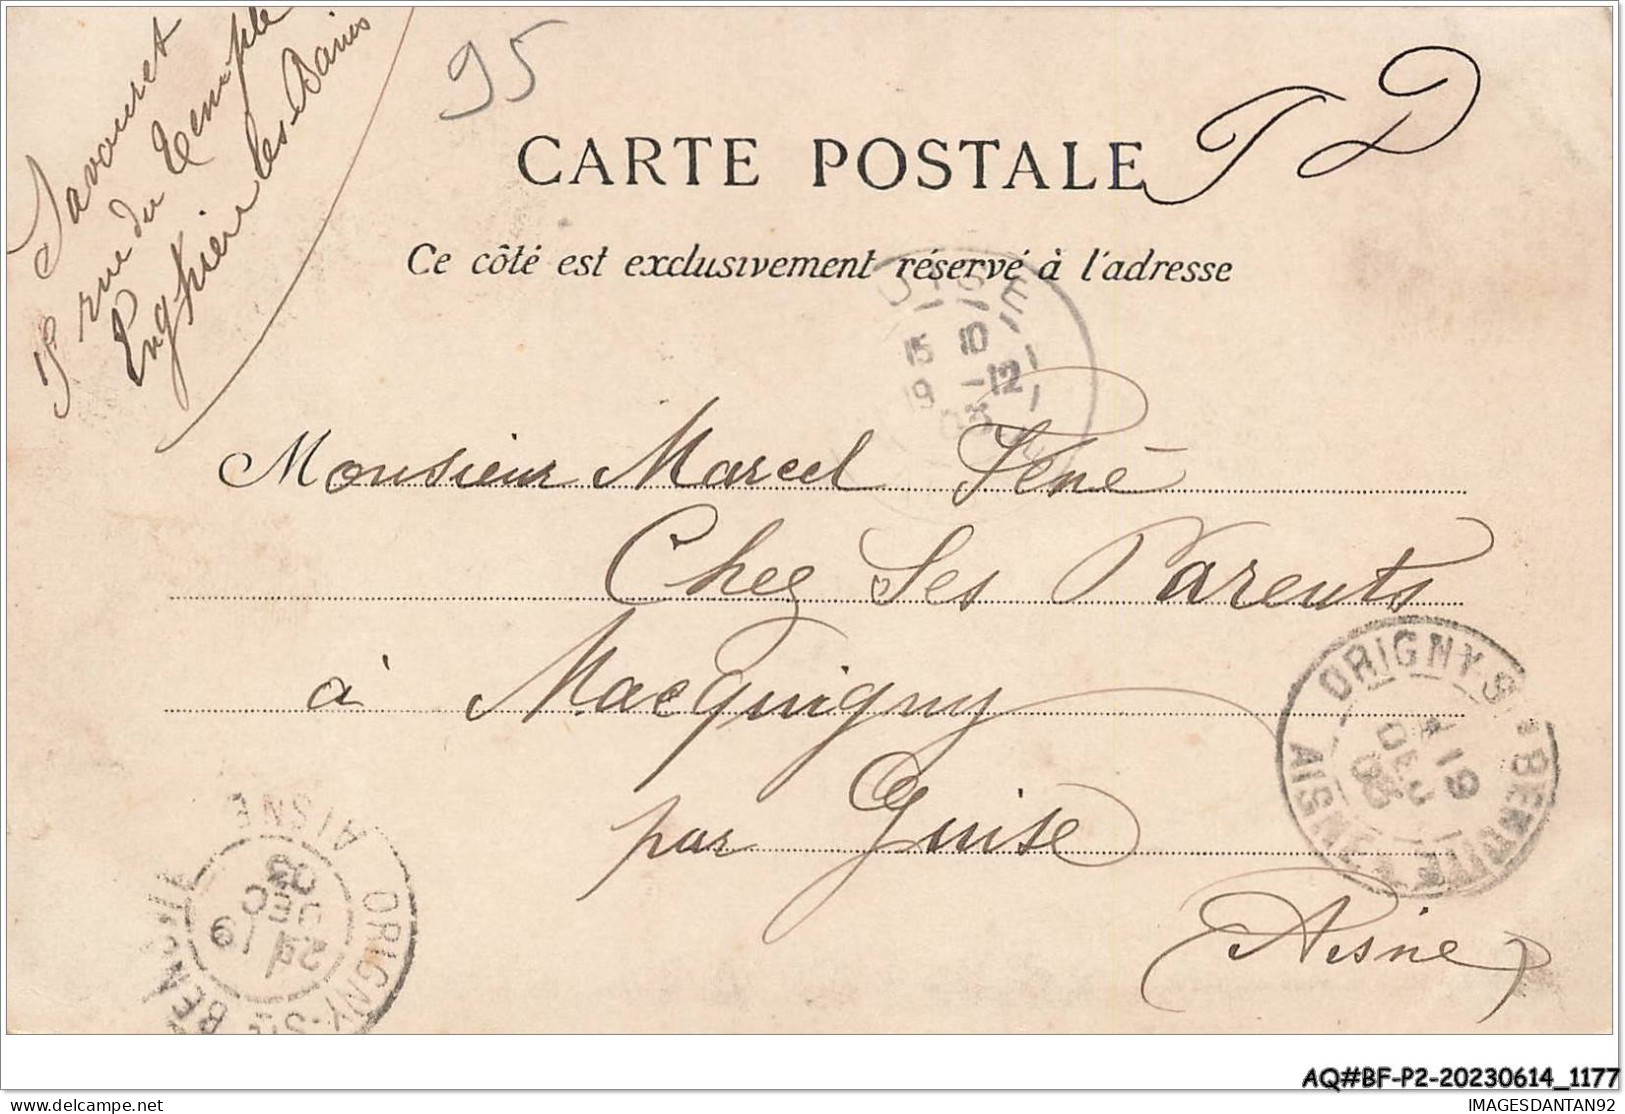 Savouret
15 rue du Temple
Enghien les-Bains
95
CARTE POSTALE
T D
Ce côté est exclusivement réservé à l'adresse
GUISE
15 10
19 -12
03
Monsieur Marcel Féné
Chez Ses Parents
à Macquigny
par Guise
(Aisne)
ORIGNY-STE BENOITE
19
DEC
03
AISNE
ORIGNY-STE BENOITE
2E / 19
DEC
03
AISNE
AQ#BF-P2-20230614_1177
delcampe.net
IMAGESDANTAN92